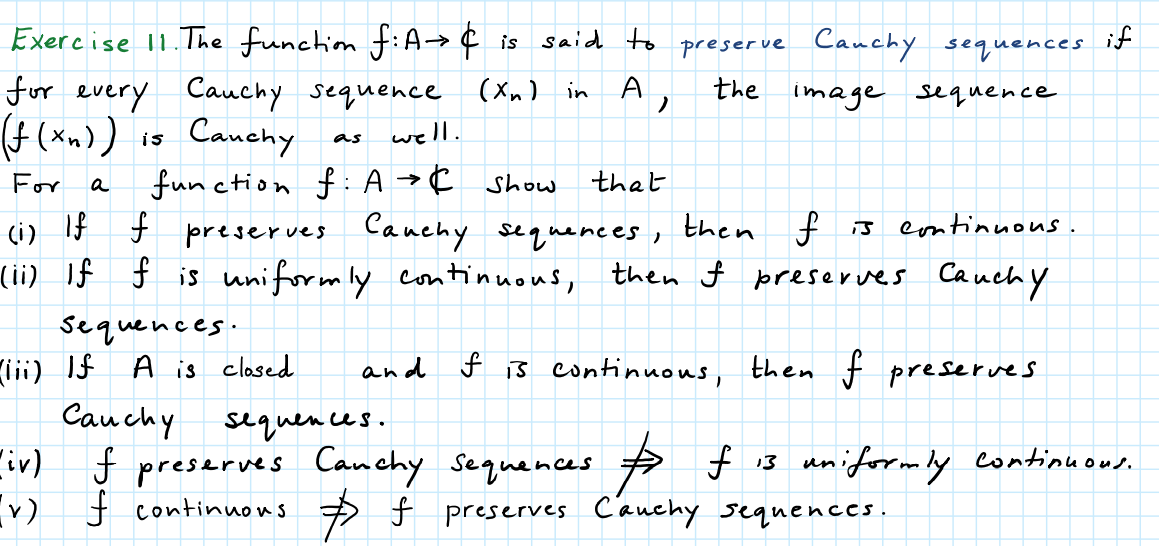 Exercise 11. The function f: A → ℂ is said to preserve Cauchy sequences if
for every Cauchy sequence (xₙ) in A, the image sequence
(f(xₙ)) is Cauchy as well.
For a function f: A → ℂ show that
(i) If f preserves Cauchy sequences, then f is continuous.
(ii) If f is uniformly continuous, then f preserves Cauchy
sequences.
(iii) If A is closed and f is continuous, then f preserves
Cauchy sequences.
(iv) f preserves Cauchy sequences ⇏ f is uniformly continuous.
(v) f continuous ⇏ f preserves Cauchy sequences.